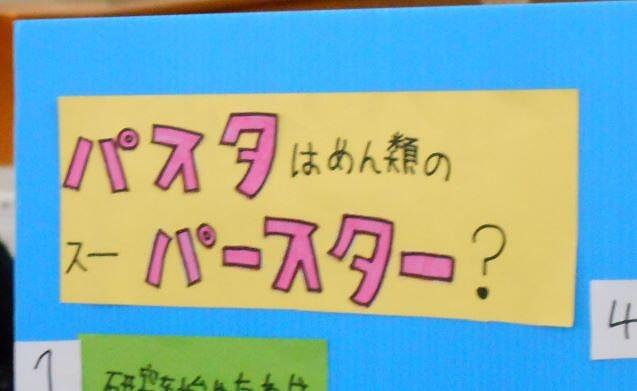 パスタはめん類の
スーパースター?
4
1
研究を始めたわけ